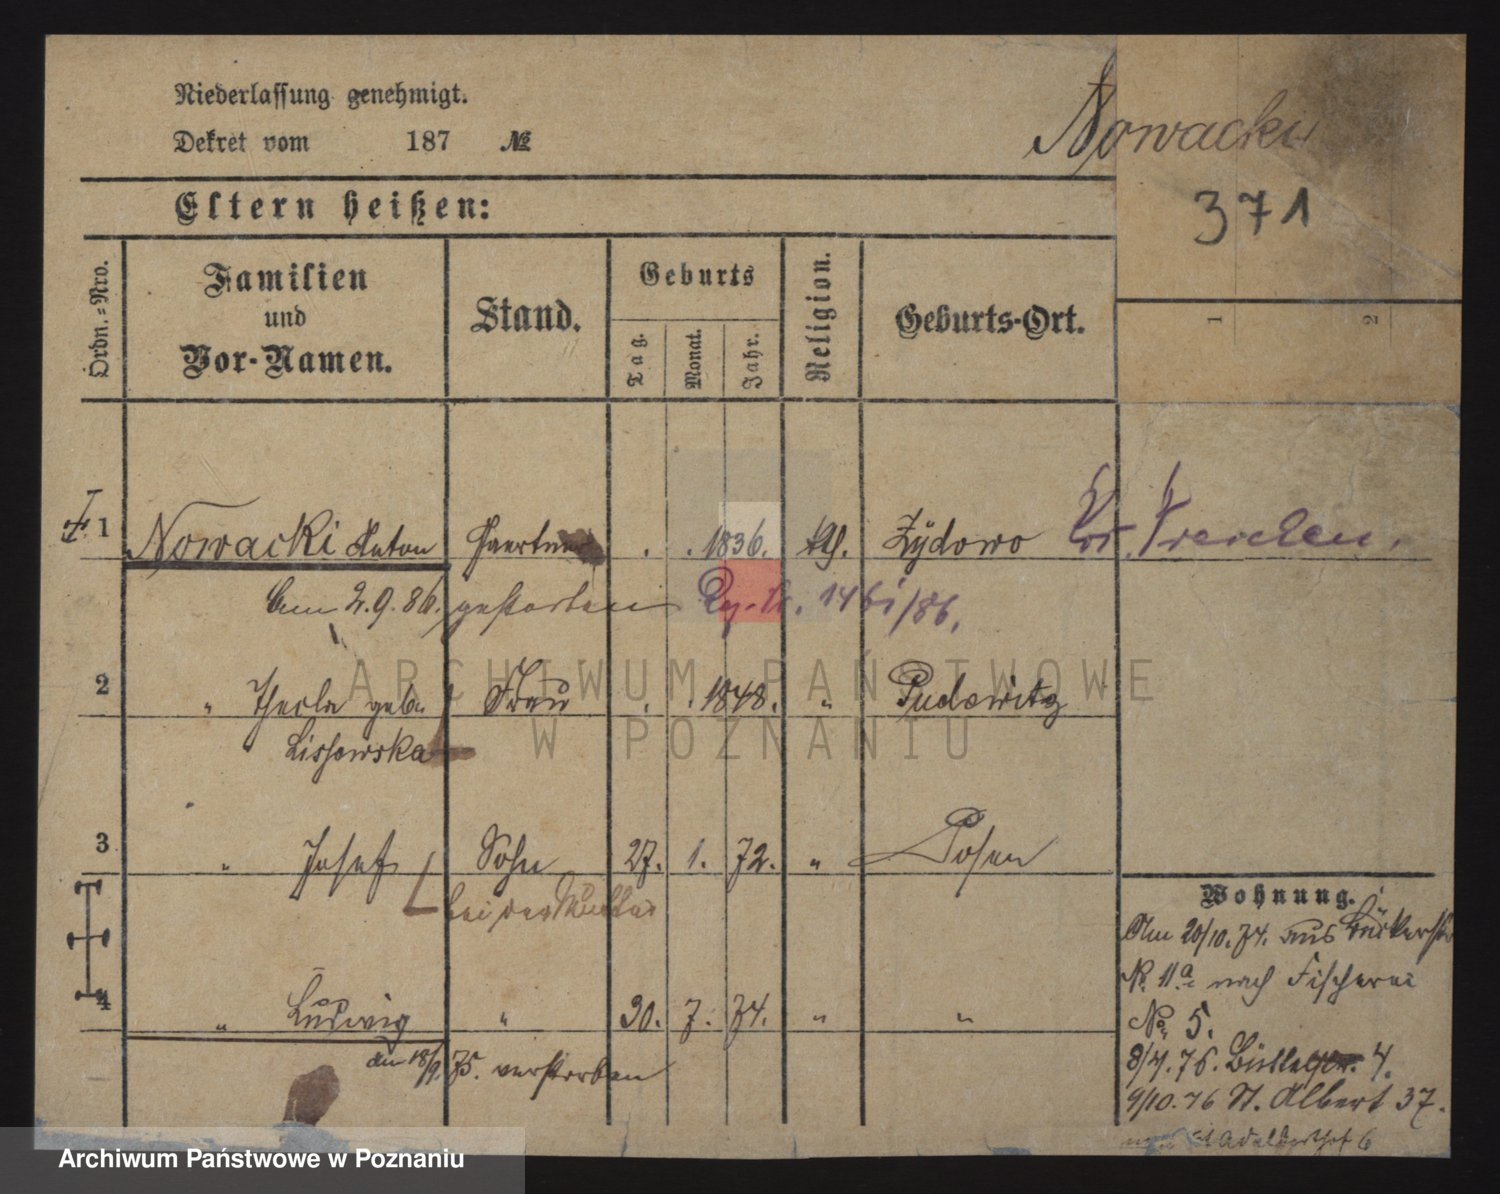 Niederlassung genehmigt.
Dekret vom 187 №
Nowacki
371
Eltern heißen:
Ordn.-Nro.
Familien und Vor-Namen.
Stand.
Geburts
Tag.
Monat.
Jahr.
Religion.
Geburts-Ort.
1
2
1 Nowacki Anton . . 1836. kth. Żydowo Kr.
Am 2.9.86. gestorben 146i/86.
2 " Thecla geb. Frau . . 1848. " Pudewitz
Lissowska
3 " Josef Sohn 27. 1. 72. " Posen
bei der Mutter
4 " Ludwig " 30. 7. 74. " "
den 18/9. 75. verstorben
Wohnung.
Am 20/10. 74. aus
N. 11a nach Fischerei
No. 5.
8/4. 76. 4.
9/10. 76 St. Albert 37.
St Adalberthof 6
ARCHIWUM PAŃSTWOWE
W POZNANIU
Archiwum Państwowe w Poznaniu